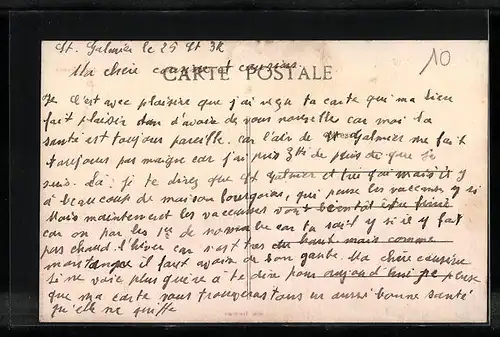 St. Galmier le 25 St 32
10
Ma chère cousine et cousins.
CARTE POSTALE
Je c'est avec plaisire que j'ai reçu ta carte qui ma bien
fait plaisir d'avoir de vous nouvelle car moi ta
santé est toujours pareille. car l'air de St Galmier me fait
toujours pas maigre car j'ai pris de plus que je
suis. La je te direz que St Galmier et
à beaucoup de maison bourgoise, qui passe les vaccances y si
Mais maintement les vaccances vont bientôt être finie
car on par les 1er de novembre car tu sait y si il y fai
pas chaud l'hiver car s'est très en haut mais comme
montangne il faut avoir du bon gaube. Ma chère cousine
Si ne voie plus guère à te dire pour aujoud'hui je pense
que ma carte vous trouveras tous en aussi bonne santé
qu'elle me quitte